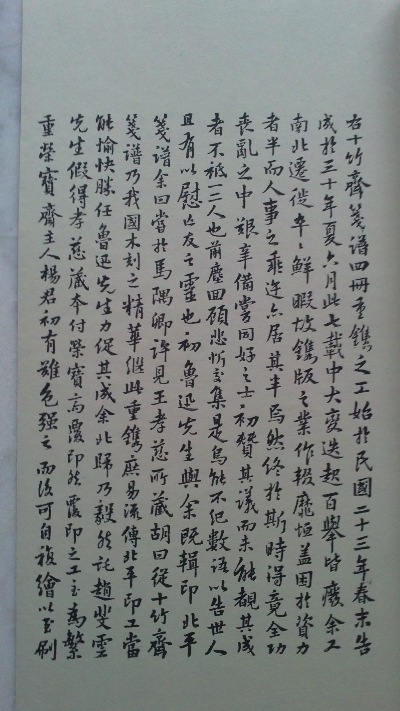 右十竹齋箋譜四冊重鐫之工始於民國二十三年春末告
成於三十年夏六月此七載中大變迭起百舉皆廢余又
南北遷徙卒卒鮮暇故鐫版之業作輟靡恒蓋困於資力
者半而人事之乖迕亦居其半焉然終於斯時得竟全功
喪亂之中艱辛備嘗同好之士初贊其議而未能覩其成
者不祗一二人也前塵回顧悲忻交集是烏能不犯數語以告世人
且有以慰亡友之靈也初魯迅先生與余既輯印北平
箋譜余曰嘗於馬隅卿許見王孝慈所藏胡曰從十竹齋
箋譜乃我國木刻之精華繼此重鐫庶易流傳北平印工當
能愉快勝任魯迅先生力促其成余北歸乃毅然託趙斐雲
先生假得孝慈藏本付榮寶齋覆印然覆印之工至為繁
重榮寶齋主人楊君初有難色強之而後可自複繪以至刷